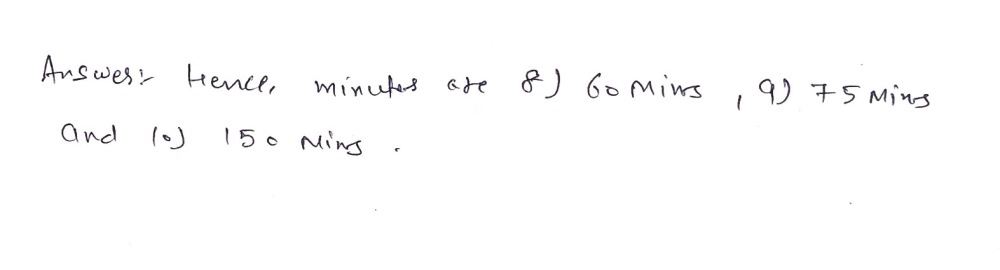 Answer:- Hence, minutes are 8) 60 Mins , 9) 75 Mins
and 10) 150 Mins .